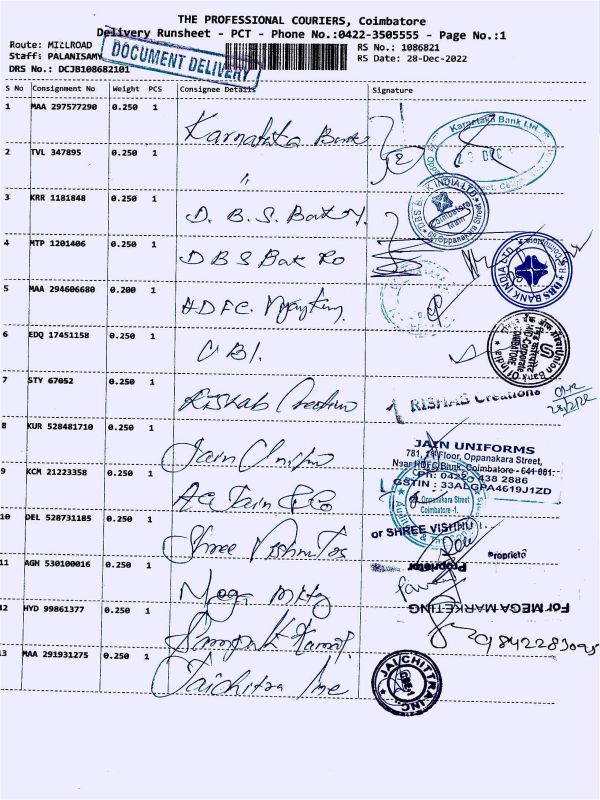 THE PROFESSIONAL COURIERS, Coimbatore
Delivery Runsheet - PCT - Phone No.:0422-3505555 - Page No.:1
Route: MILLROAD
Staff: PALANISAMY
DRS No.: DCJB108682101
DOCUMENT DELIVERY
RS No.: 1086821
RS Date: 28-Dec-2022
S No Consignment No Weight PCS Consignee Details Signature
1 MAA 297577290 0.250 1 Karnataka Bank
Karnataka Bank Ltd.
2 TVL 347895 0.250 1 "
3 KRR 1181848 0.250 1 D.B.S. Bank
Coimbatore Main
4 MTP 1201406 0.250 1 DBS Bak Ro
DBS BANK INDIA LTD
5 MAA 294606680 0.200 1 HDFC
6 EDQ 17451158 0.250 1 UBI.
Union Bank Of India
7 STY 67052 0.250 1 Rishab Creation
RISHAB Creations
8 KUR 528481710 0.250 1 Jain Unifo
JAIN UNIFORMS
781, 1st Floor, Oppanakara Street,
Near HDFC Bank, Coimbatore - 641 001.
Ph: 0422 438 2886
GSTIN : 33ALGPA4619J1ZD
9 KCM 21223358 0.250 1 AC Jain & Co
Oppanakara Street
Coimbatore -1.
10 DEL 528731185 0.250 1 Shree Vishnu Tos
or SHREE VISHNU
Proprieto
11 AGH 530100016 0.250 1 Mega Mktg
Proprietor
For MEGA MARKETING
12 HYD 99861377 0.250 1
9842283095
13 MAA 291931275 0.250 1 Jaichitra Inc
JAI CHITTRA INC